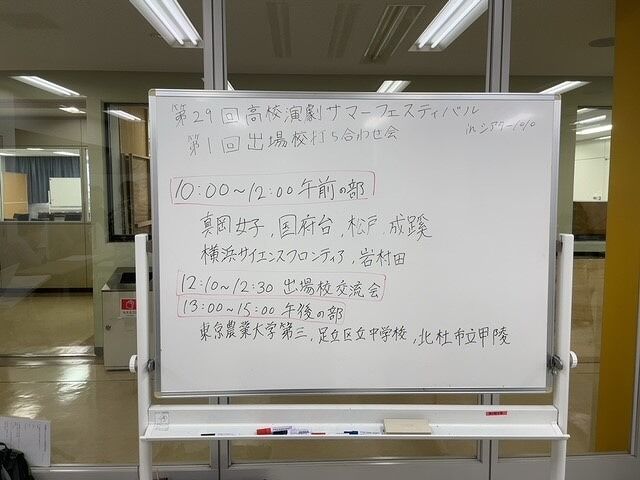 第29回 高校演劇サマーフェスティバル
in シアター1010
第1回 出場校打ち合わせ会
10:00~12:00 午前の部
真岡女子、国府台、松戸、成蹊
横浜サイエンスフロンティア、岩村田
12:10~12:30 出場校交流会
13:00~15:00 午後の部
東京農業大学第三、足立区立中学校、北杜市立甲陵